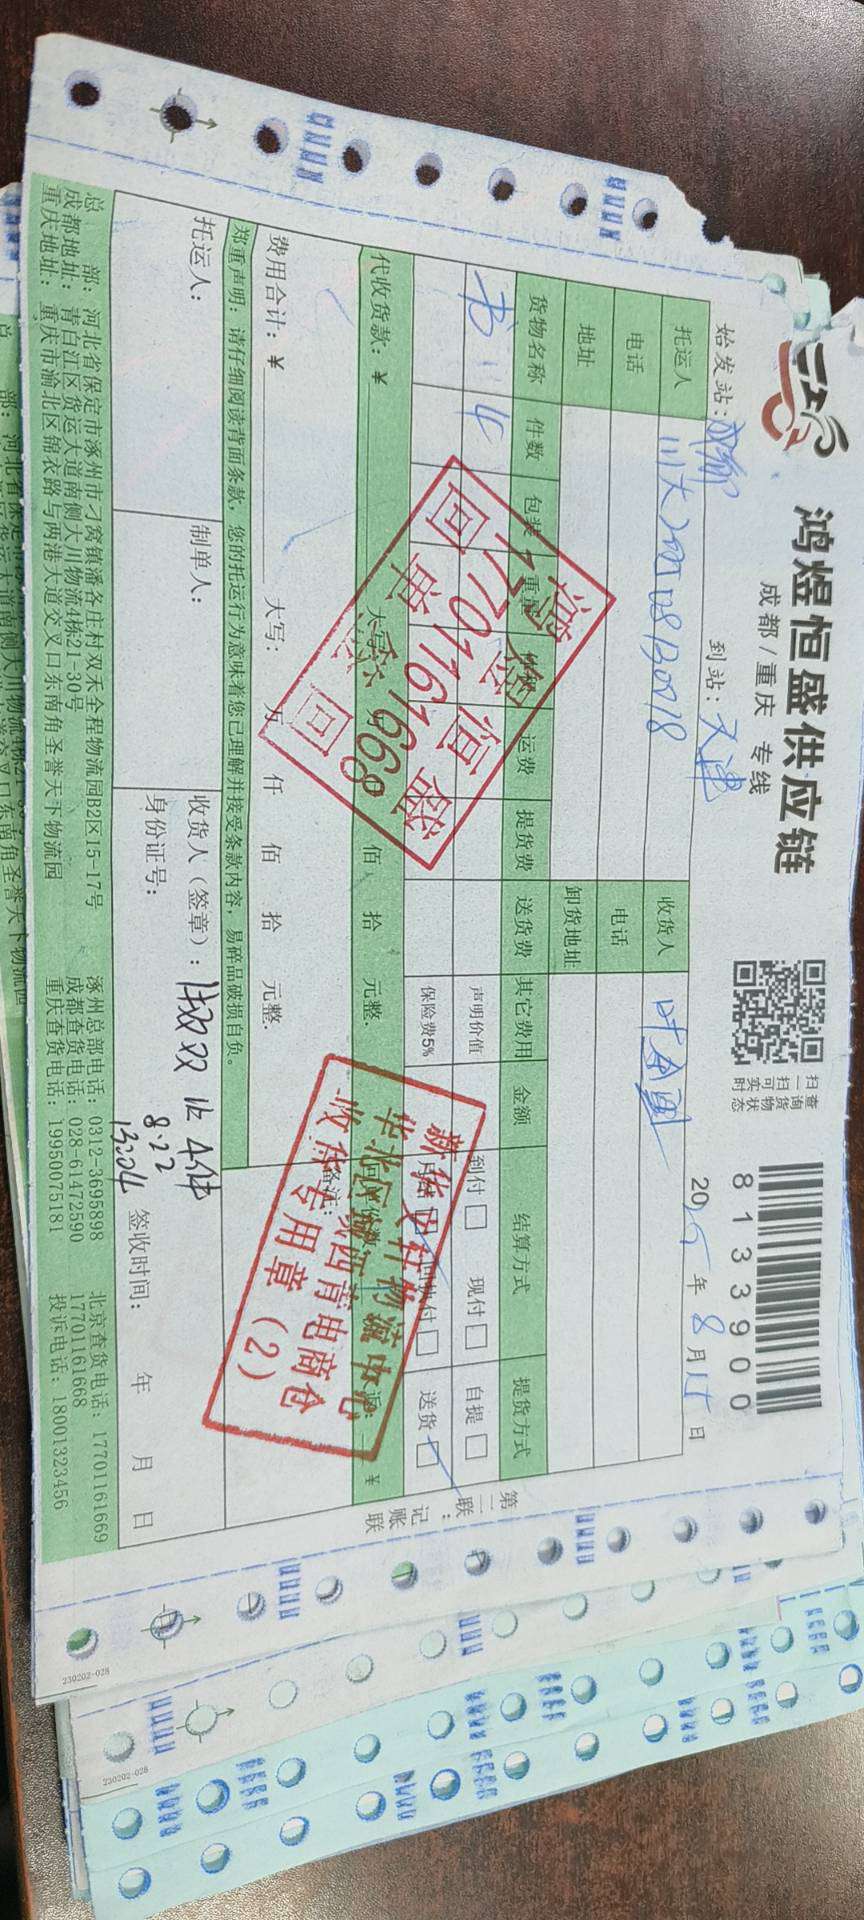 鸿煜恒盛供应链
成都/重庆 专线
扫一扫 查询货物实时状态
8133900
始发站：成都 到站：天津 2025年8月15日
托运人 川大202508130818 收货人 叶全国
电话 电话
地址 卸货地址
货物名称 件数 包装 重量 运费 提货费 送货费 其它费用 金额 结算方式 提货方式
书 4 声明价值 到付 现付 自提
保险费5% 回单付 送货
代收货款：¥ 佰 拾 元整. ¥
费用合计：¥ 大写： 万 仟 佰 拾 元整. 备注：
郑重声明：请仔细阅读背面条款，您的托运行为意味着您已理解并接受条款内容，易碎品破损自负。
托运人： 制单人： 收货人（签章）： 收 4件
8.22
13:04
身份证号： 签收时间： 年 月 日
总 部：河北省保定市涿州市刁窝镇潘各庄村双禾全程物流园B2区15-17号 涿州总部电话：0312-3695898 北京查货电话：17701161669
成都地址：青白江区货运大道南侧大川物流园1栋21-30号 成都查货电话：028-61472590 17701161668
重庆地址：重庆市渝北区锦衣路与两港大道交叉口东南角圣誉天下物流园 重庆查货电话：19950075181 投诉电话：18001323456
第二联：记账联
鸿煜恒盛
17701161668
回单 签回
新华文轩物流中心
华北区域西青电商仓
收货专用章（2）
230202-028
230202-028